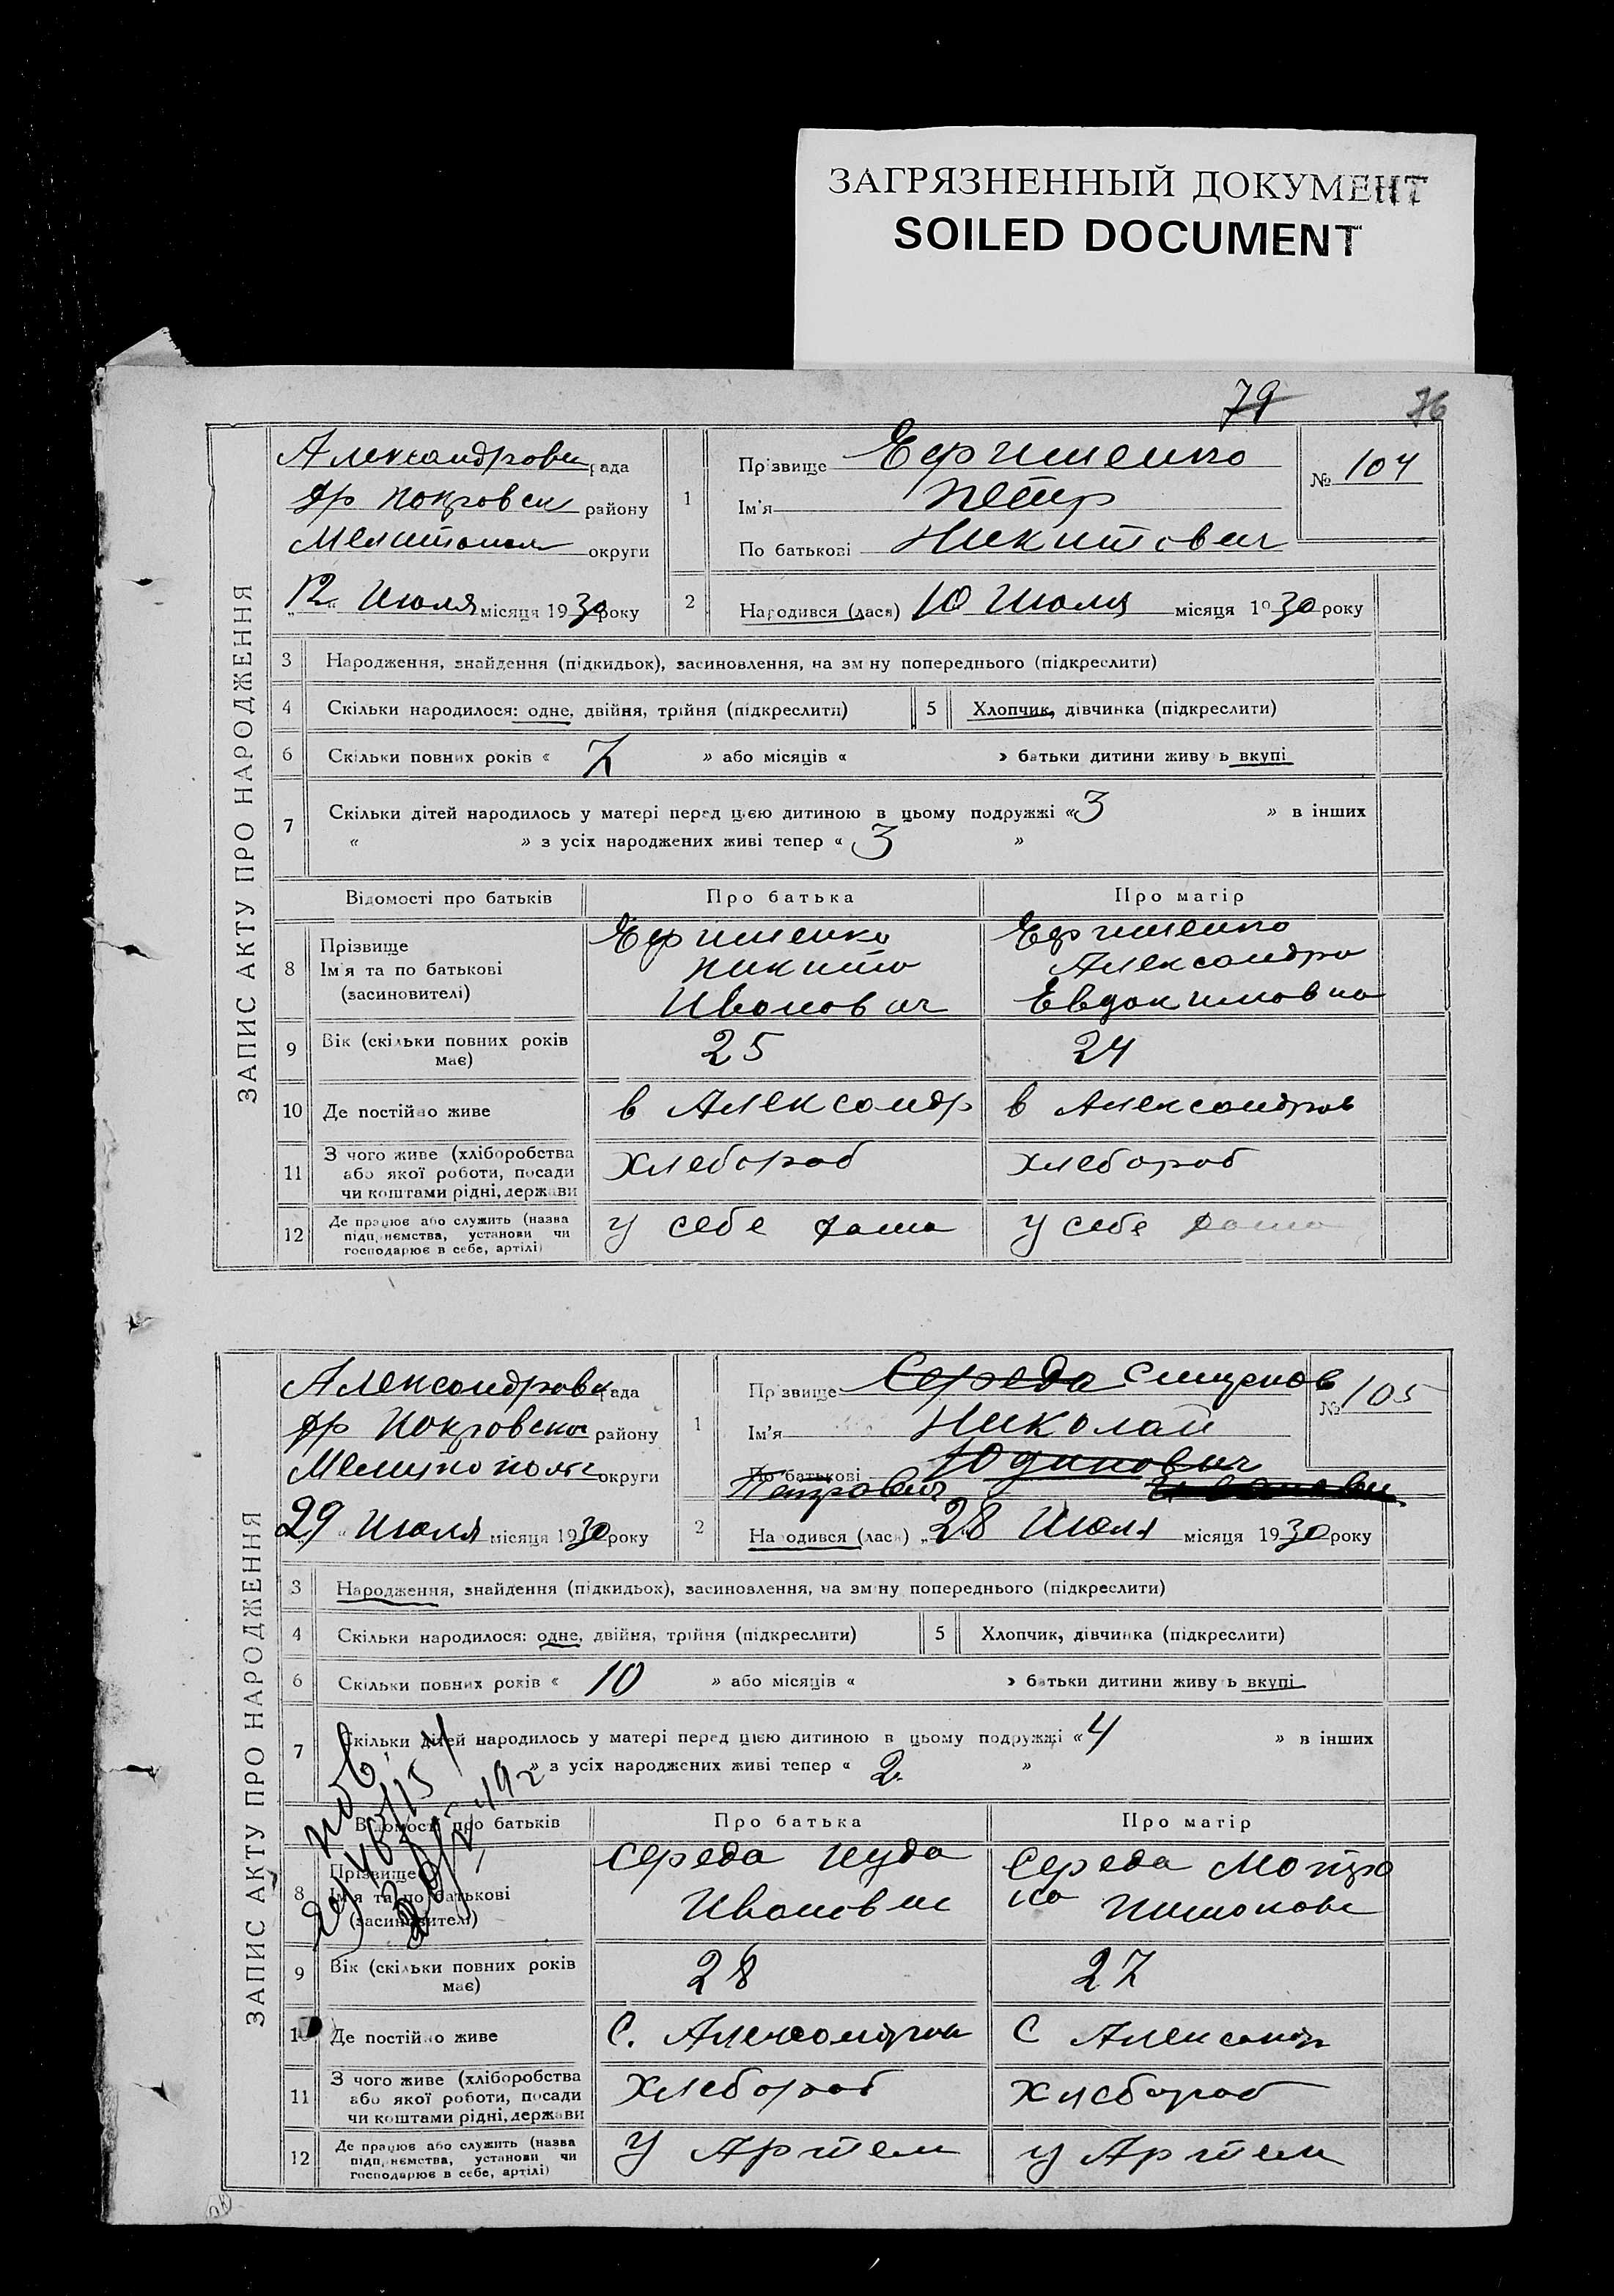 ЗАГРЯЗНЕННЫЙ ДОКУМЕНТ
SOILED DOCUMENT
79 76
ЗАПИС АКТУ ПРО НАРОДЖЕННЯ
Александровк рада
др Покровск району
Мелитопол округи
"12" Июля місяця 1930 року
1
Прізвище Ефименко
Ім'я Петр
По батькові Никитович
№ 104
2 Народився (лася) 10 Июля місяця 1930 року
3 Народження, знайдення (підкидьок), засиновлення, на зміну попереднього (підкреслити)
4 Скільки народилося: одне, двійня, трійня (підкреслити) 5 Хлопчик, дівчинка (підкреслити)
6 Скільки повних років « 7 » або місяців « » батьки дитини живуть вкупі
7 Скільки дітей народилось у матері перед цією дитиною в цьому подружжі « 3 » в інших
« » з усіх народжених живі тепер « 3 »
Відомості про батьків Про батька Про матір
8 Прізвище
Ім'я та по батькові
(засиновителі)
Ефименко
Никита
Иванович
Ефименко
Александра
Евдокимовна
9 Вік (скільки повних років має) 25 24
10 Де постійно живе в Александр в Александров
11 З чого живе (хліборобства
або якої роботи, посади
чи коштами рідні, держави
Хлебороб Хлебороб
12 Де працює або служить (назва
підприємства, установи чи
господарює в себе, артілі)
у себе дома у себе дома
ЗАПИС АКТУ ПРО НАРОДЖЕННЯ
Александровк рада
др Покровска району
округи
"29" Июля місяця 1930 року
1
Прізвище Середа
№ 105
Ім'я Николай
По батькові
Петрович
2 Народився (лася) „28 Июля місяця 1930 року
3 Народження, знайдення (підкидьок), засиновлення, на зміну попереднього (підкреслити)
4 Скільки народилося: одне, двійня, трійня (підкреслити) 5 Хлопчик, дівчинка (підкреслити)
6 Скільки повних років « 10 » або місяців « » батьки дитини живуть вкупі
7 Скільки дітей народилось у матері перед цією дитиною в цьому подружжі « 4 » в інших
» з усіх народжених живі тепер « 2 »
Відомості про батьків Про батька Про матір
8 Прізвище
Ім'я та по батькові
(засиновителі)
Середа Иуда
Иванович
Середа Матро
на
9 Вік (скільки повних років має) 28 27
10 Де постійно живе С. Александров С Александр
11 З чого живе (хліборобства
або якої роботи, посади
чи коштами рідні, держави
Хлебороб Хлебороб
12 Де працює або служить (назва
підприємства, установи чи
господарює в себе, артілі)
у Артели у Артели